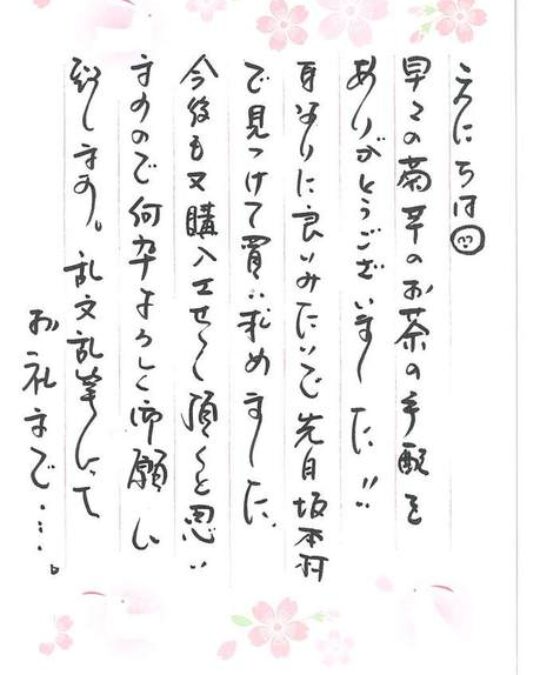 こんにちは
早々の菊芋のお茶の手配を
ありがとうございました!!
自分なりに良いみたいで先日坂本村
で見つけて買い求めました、
今後も又購入させて頂くと思い
ますので何卒よろしく御願い
致します。乱文乱筆にて
お礼まで‥‥。